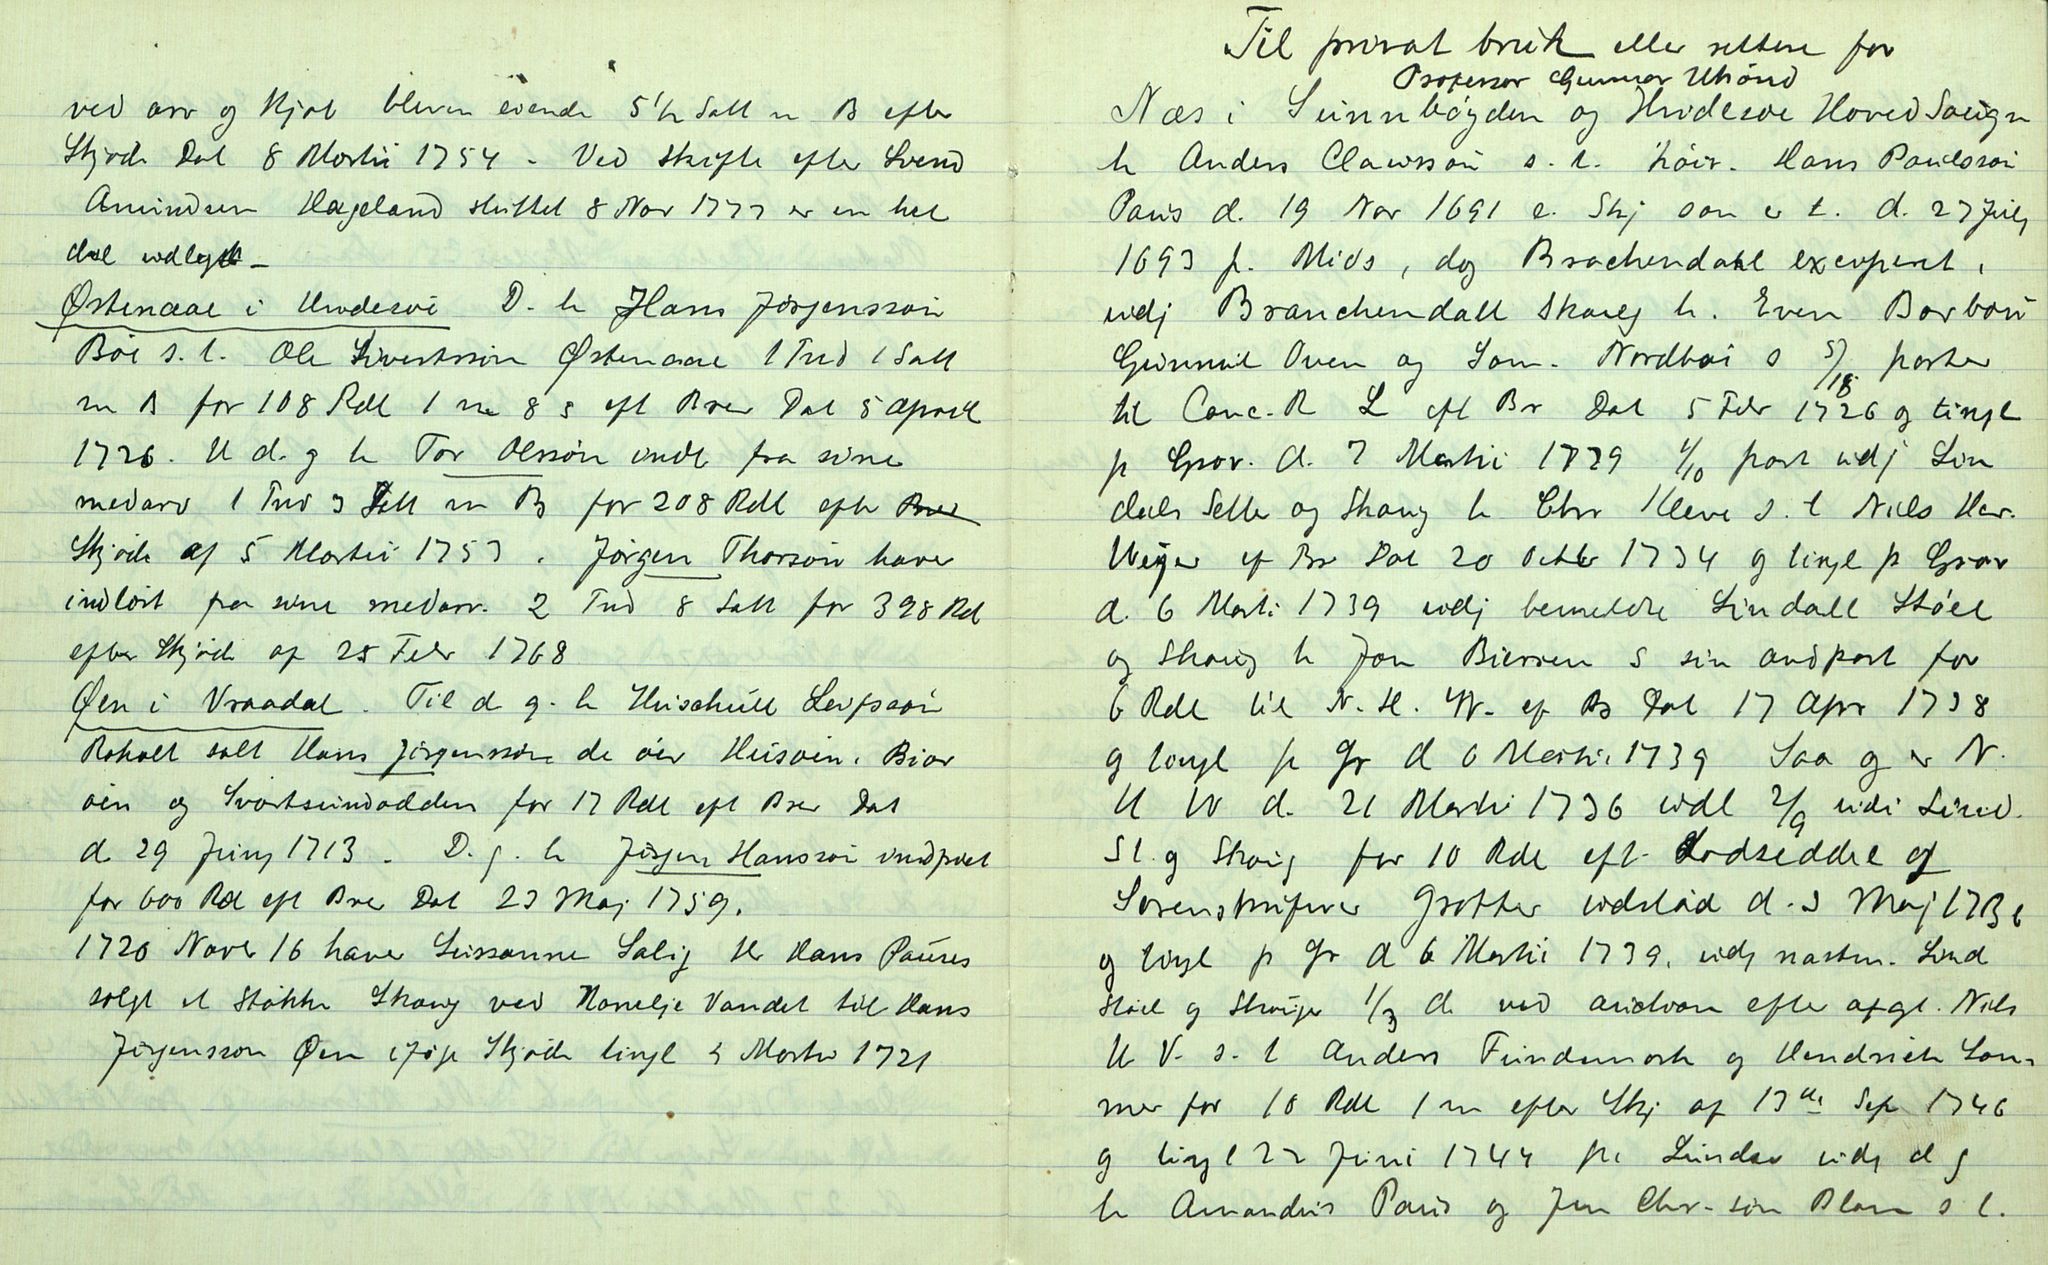 ved arv og kjøb bleven eiende 5 1/2 Sett n B efter
Skjøde Dat 8 Martii 1754 - Ved skifte efter Svend
Amundsen Hægeland sluttet 8 Nov 1777 er en hel
del udlagt -
Østenaae i Hvidesøe D. h Hans Jørgenssøn
Bøe s. t. Ole Sivertssøn Østenaae 1 Tnd 1 Sett
m B for 108 Rdl 1 m 8 s eft Brev Dat 5 April
1726. U d. g h Tor Olssøn indl fra sine
medarv 1 Tnd 3 Sett m B for 208 Rdl efter Brev
Skjøde af 5 Martii 1757. Jørgen Thorsøn haver
indløst fra sine medarv. 2 Tnd 8 Sett for 398 Rdl
efter Skjøde af 25 Febr 1768
Øen i Vraadal. Til d g. h Leifssøn
Roholt solt Hans Jørgenssøn de øer Husøen, Bior
øen og Svartsundodden for 17 Rdl eft Brev Dat
d. 29 Juny 1713. D. g. h Jørgen Hanssøn
for 600 Rdl eft Brev Dat 23 Maj 1759.
1720 Novbr 16 haver Sussanne Salig Hr Hans Pauses
solgt et støkke Skoug ved Vandet til Hans
Jørgenssøn Øen ifølge Skjøde tingl 5 Martii 1721
Til privat bruk eller rettere for
Professor Gunnar
Næs i Sunnbøgden og Hvidesøe Hoved Sougn
h Anders Clawssøn s. t. Hans Paulssøn
Paus d. 19 Nov 1691 e. Skj som er t. d. 27 July
1693 p. Mids, dog Brachendahl exceperet,
udj Branchendall Skoug h. Even Barboni
Gunnul Oven og Som. Nordbøi s 5/18 parter
til Canc. R L eft Br Dat 5 Febr 1726 og tingl
p Grav. d. 7 Martii 1729 1/10 part udj Lin
dals Setter og Skoug h Chr Kleve s. t Niels Her.
Weyer ef Br Dat 20 Octbr 1734 g tingl p Grav
d. 6 Marti 1739 udj bemeldte Lindall Støel
og Skoug h Jon Biersen s sin andpart for
6 Rdl til N. H. W. ef Br Dat 17 Apr 1738
g tingl p Gr d 6 Martii 1739 Saa g er N.
H W d. 21 Martii 1736 udl 2/9 udi Lind.
St. g Skoug for 10 Rdl eft. Lodseddel af
Sorenskrifver Grotter udsted d. 3 Maj 1736
g tingl p Gr d 6 Martii 1739, udj næsten. Lind
støel g Skouger 1/3 d. ved auction efter afgl. Niels
H V. s. t Anders Fundemark og Hendrich Lam-
mer for 10 Rdl 1 m efter Skj af 13de Sep 1746
g tingl 22 Juni 1744 pr. Lunder udj d g
h Amandus Paus og Jens Chr-søn Blom s t.